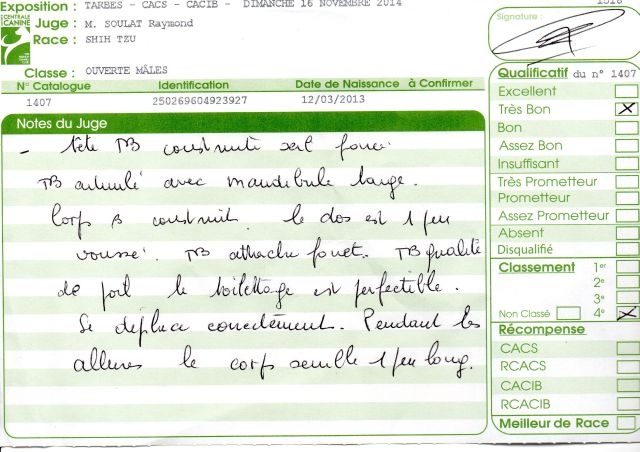 CENTRALE
CANINE
Exposition : TARBES - CACS - CACIB - DIMANCHE 16 NOVEMBRE 2014
Juge : M. SOULAT Raymond
Race : SHIH TZU
Classe : OUVERTE MÂLES
N° Catalogue Identification Date de Naissance à Confirmer
1407 250269604923927 12/03/2013
Notes du Juge
- Tête TB construite
TB avec mandibule large.
Corps B construit. le dos est 1 peu
voussé. TB attache fouet. TB qualité
de poil le toilettage est perfectible.
Se déplace correctement. Pendant les
allures le corps semble 1 peu long.
Signature :
Qualificatif du n° 1407
Excellent
Très Bon X
Bon
Assez Bon
Insuffisant
Très Prometteur
Prometteur
Assez Prometteur
Absent
Disqualifié
Classement 1er
2e
3e
Non Classé 4e X
Récompense
CACS
RCACS
CACIB
RCACIB
Meilleur de Race